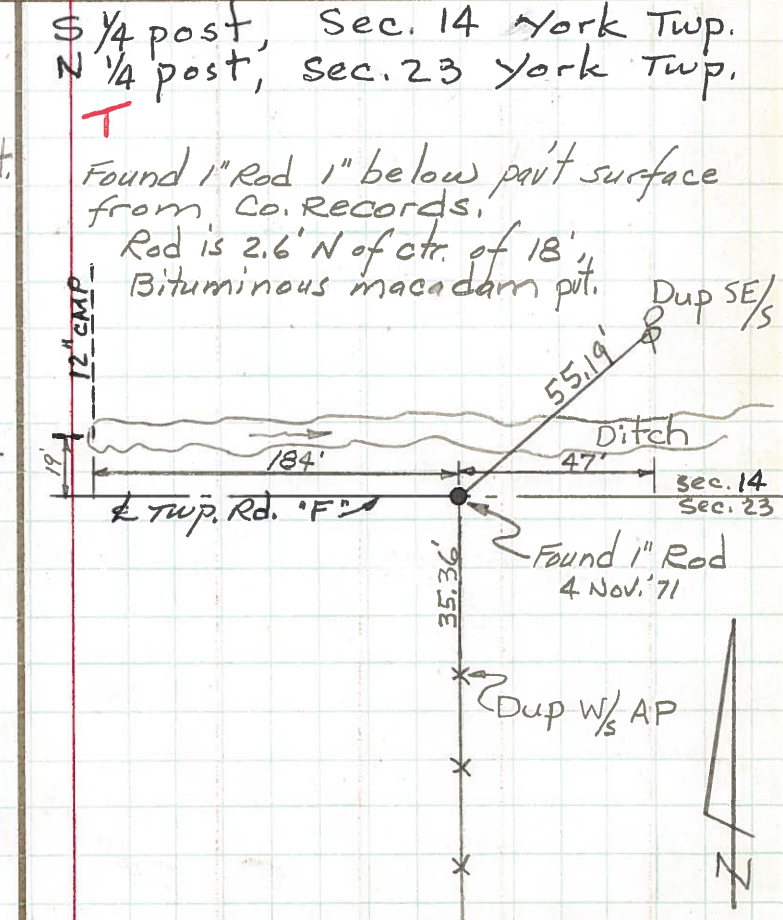 S 1/4 post, Sec. 14 York Twp.
N 1/4 post, Sec. 23 York Twp.
T
Found 1" Rod 1" below pav't surface
from Co. Records.
Rod is 2.6' N of ctr. of 18'
Bituminous macadam pvt.
Dup SE/s
12" CMP
55.19'
Ditch
19'
184'
47'
Sec. 14
Sec. 23
℄ Twp. Rd. "F"
Found 1" Rod
4 Nov. '71
35.36'
Dup W/s AP
N